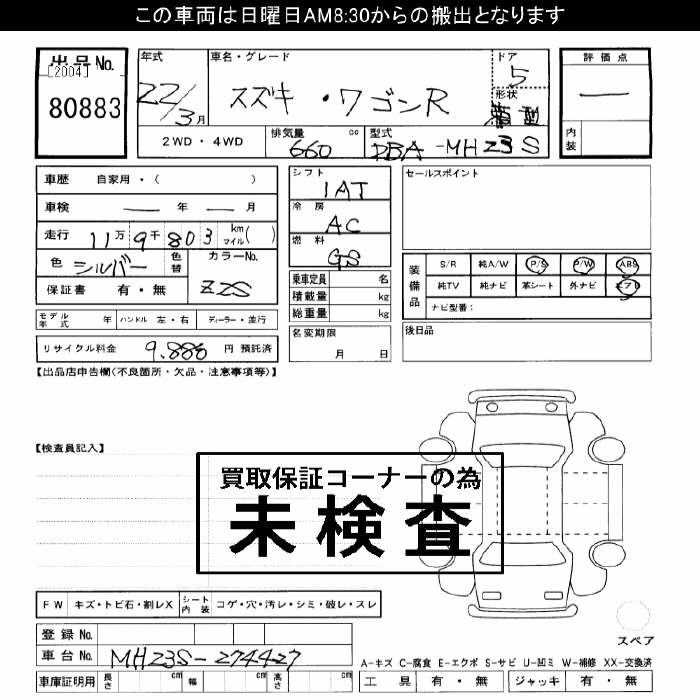 この車両は日曜日AM8:30からの搬出となります
出品No.
[2004]
80883
年式
22/3月
車名・グレード
スズキ ・ワゴンR
ドア
5
形状
箱型
評価点
―
内装
2WD・4WD
排気量 cc
660
型式
DBA-MH23S
車歴 自家用・( )
車検 ― 年 ― 月
走行 11万9千803 km マイル( )
色 シルバー 色替
カラーNo.
Z2S
保証書 有・無
モデル年式 年 ハンドル 左・右 ディーラー・並行
リサイクル料金 9.880 円 預託済
シフト
IAT
冷房
AC
燃料
GS
乗車定員 名
積載量 kg
総重量 kg
名変期限
月 日
セールスポイント
装備品
S/R 純A/W P/S P/W ABS
純TV 純ナビ 革シート 外ナビ エアB
ナビ型番:
後日品
【出品店申告欄(不良箇所・欠品・注意事項等)】
【検査員記入】
買取保証コーナーの為
未検査
FW キズ・トビ石・割レX シート内装 コゲ・穴・汚レ・シミ・破レ・スレ
登録No.
車台No. MH23S-274427
車庫証明用 長さ cm 幅 cm 高さ cm
スペア
A-キズ C-腐食 E-エクボ S-サビ U-凹ミ W-補修 XX-交換済
工具 有・無 ジャッキ 有・無